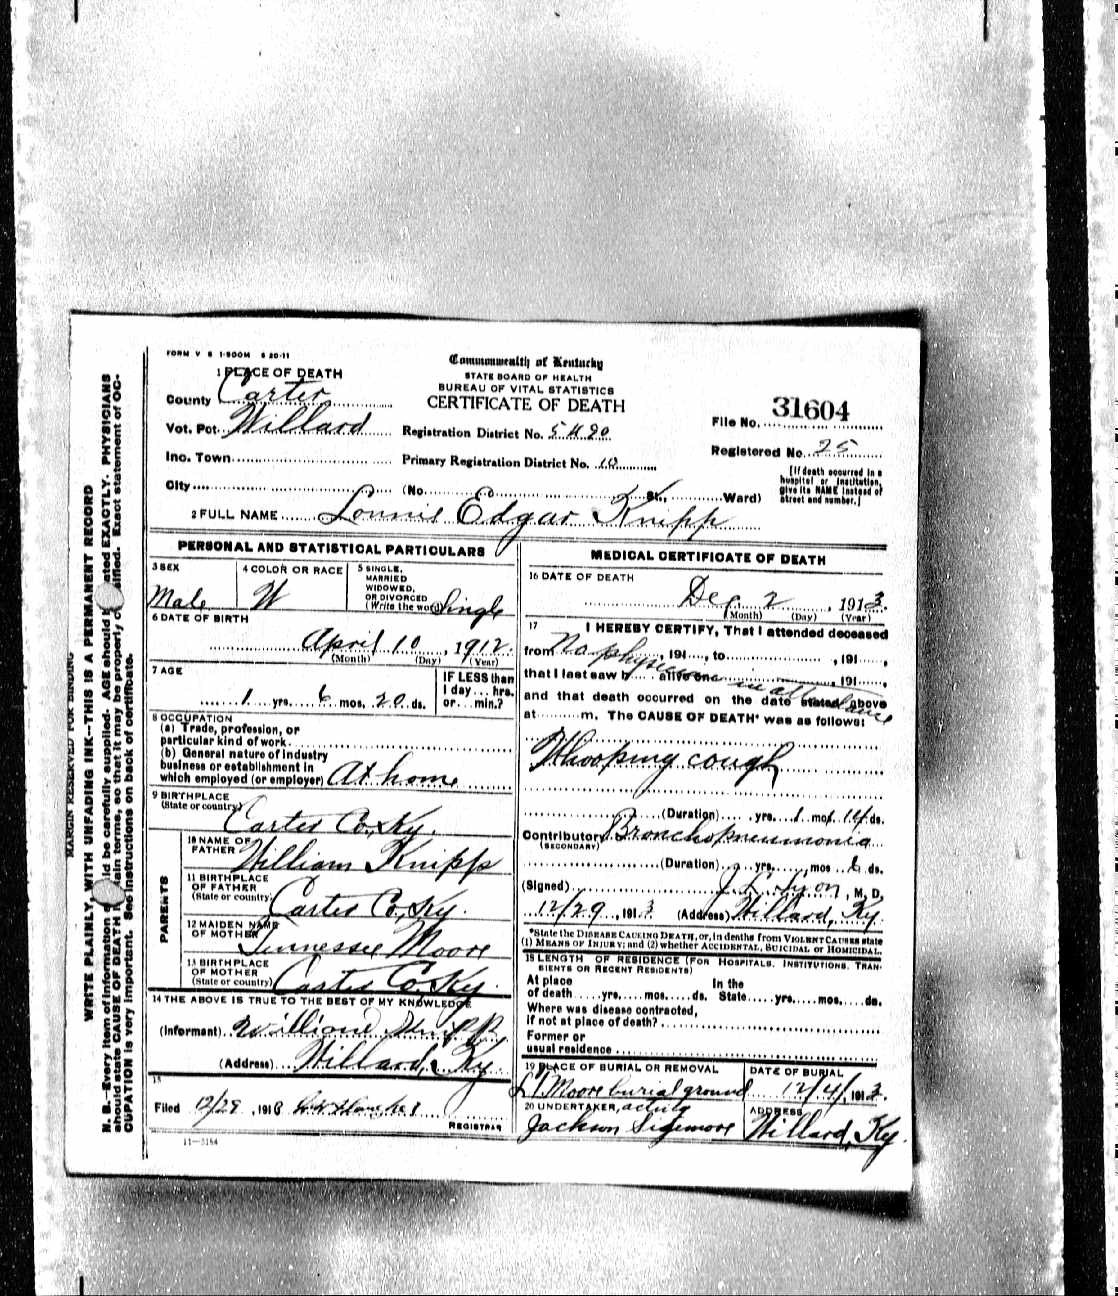 FORM V S 1-500M 6 20-11
1 PLACE OF DEATH
County Carter
Vot. Pct. Willard
Inc. Town
City
Commonwealth of Kentucky
STATE BOARD OF HEALTH
BUREAU OF VITAL STATISTICS
CERTIFICATE OF DEATH
Registration District No. 5490
Primary Registration District No. 10
(No. St., Ward)
File No. 31604
Registered No. 25
[If death occurred in a
hospital or institution,
give its NAME instead of
street and number.]
2 FULL NAME Lonnie Edgar Knipp
PERSONAL AND STATISTICAL PARTICULARS
3 SEX
Male
4 COLOR OR RACE
W
5 SINGLE,
MARRIED
WIDOWED,
OR DIVORCED
(Write the word) Single
6 DATE OF BIRTH
April 10, 1912.
(Month) (Day) (Year)
7 AGE
1 yrs. 6 mos. 20 ds.
IF LESS than
1 day ... hrs.
or ... min.?
8 OCCUPATION
(a) Trade, profession, or
particular kind of work
(b) General nature of industry
business or establishment in
which employed (or employer) At home
9 BIRTHPLACE
(State or country) Carter Co., Ky.
PARENTS
10 NAME OF
FATHER William Knipp
11 BIRTHPLACE
OF FATHER
(State or country) Carter Co., Ky.
12 MAIDEN NAME
OF MOTHER Tennessee Moore
13 BIRTHPLACE
OF MOTHER
(State or country) Carter Co. Ky.
14 THE ABOVE IS TRUE TO THE BEST OF MY KNOWLEDGE
(Informant) William Knipp
(Address) Willard, Ky.
15
Filed 12/29, 1913
REGISTRAR
11-3184
MEDICAL CERTIFICATE OF DEATH
16 DATE OF DEATH
Dec. 2, 1913.
(Month) (Day) (Year)
17 I HEREBY CERTIFY, That I attended deceased
from No physician, 191, to, 191,
that I last saw h alive on in attendance, 191,
and that death occurred on the date stated above
at m. The CAUSE OF DEATH* was as follows:
Whooping cough
(Duration) yrs. 1 mos. 14 ds.
Contributory Bronchopneumonia
(SECONDARY)
(Duration) yrs. mos 6 ds.
(Signed) J. L. Lyon, M. D.
12/29, 1913 (Address) Willard, Ky.
*State the DISEASE CAUSING DEATH, or, in deaths from VIOLENT CAUSES state
(1) MEANS OF INJURY; and (2) whether ACCIDENTAL, SUICIDAL or HOMICIDAL.
18 LENGTH OF RESIDENCE (FOR HOSPITALS, INSTITUTIONS, TRAN-
SIENTS OR RECENT RESIDENTS)
At place In the
of death yrs. mos. ds. State yrs. mos. ds.
Where was disease contracted,
if not at place of death?
Former or
usual residence
19 PLACE OF BURIAL OR REMOVAL
Moore burial ground
DATE OF BURIAL
12/4/, 1913.
20 UNDERTAKER, acting
Jackson Sizemore
ADDRESS
Willard, Ky.
MARGIN RESERVED FOR BINDING
WRITE PLAINLY, WITH UNFADING INK—THIS IS A PERMANENT RECORD
N. B.—Every item of information should be carefully supplied. AGE should stated EXACTLY. PHYSICIANS
should state CAUSE OF DEATH plain terms, so that it may be properly classified. Exact statement of OC-
CUPATION is very important. See instructions on back of certificate.